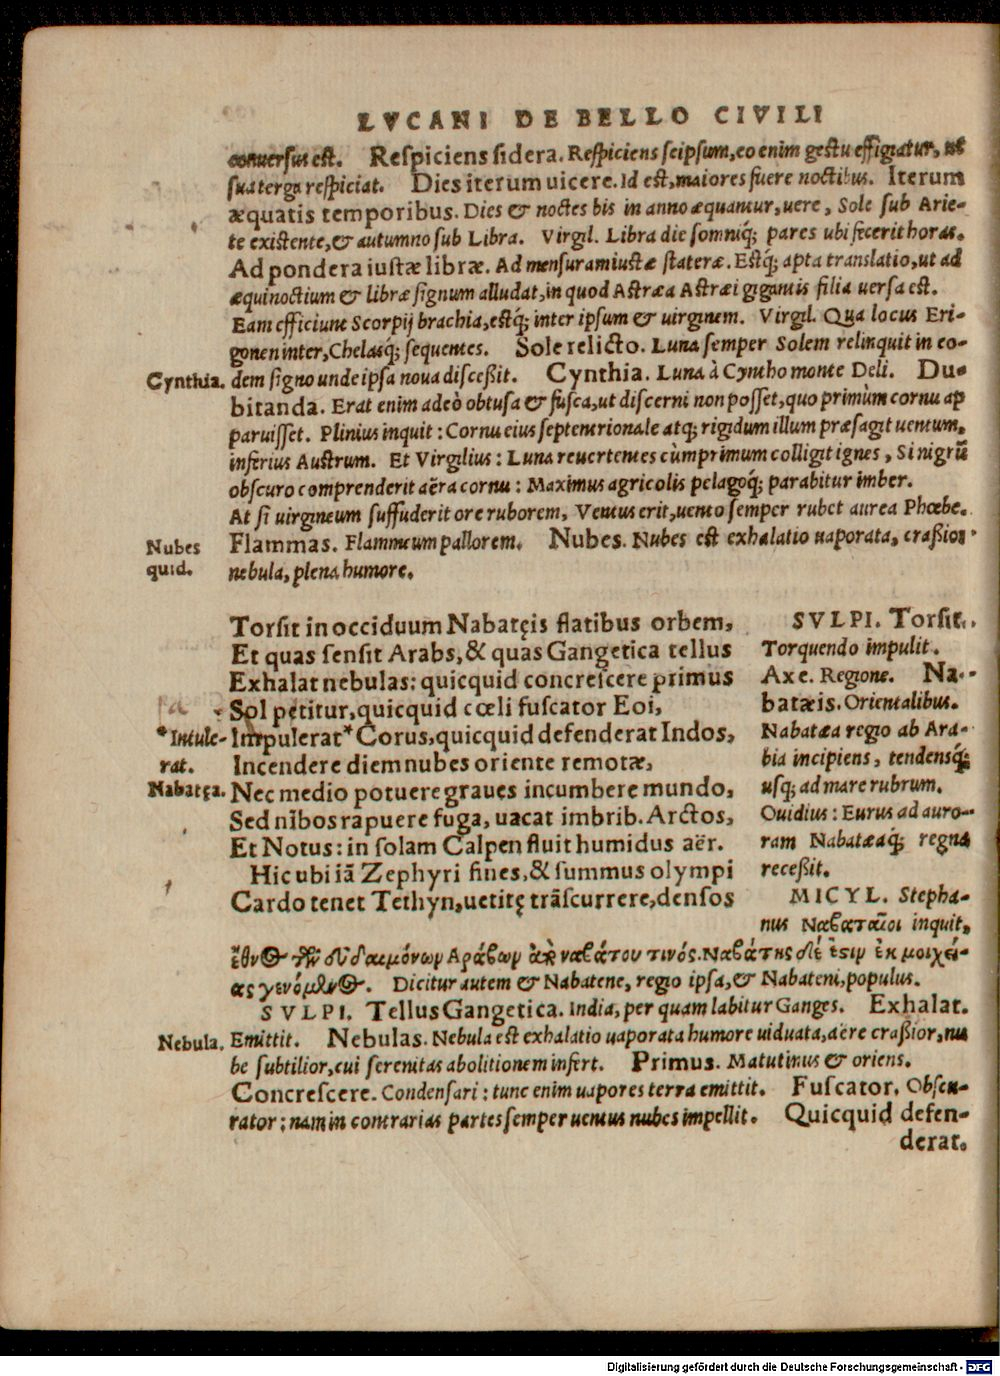 LVCANI DE BELLO CIVILI
conuersus est. Respiciens sidera. Respiciens seipsum, eo enim gestu effigiatur, ut
sua terga respiciat. Dies iterum uicere. Id est, maiores fuere noctibus. Iterum
æquatis temporibus. Dies & noctes bis in anno æquantur, uere, Sole sub Arie-
te existente, & autumno sub Libra. Virgil. Libra die somniq; pares ubi fecerit horas.
Ad pondera iustæ libræ. Ad mensuram iustæ stateræ. Estq; apta translatio, ut ad
æquinoctium & libræ signum alludat, in quod Astræa Astræi gigantis filia uersa est.
Eam efficiunt Scorpij brachia, estq; inter ipsum & uirginem. Virgil. Qua locus Eri-
gonen inter, Chelasq; sequentes. Sole relicto. Luna semper Solem relinquit in eo-
Cynthia. dem signo unde ipsa noua disceßit. Cynthia. Luna à Cyntho monte Deli. Du-
bitanda. Erat enim adeò obtusa & fusca, ut discerni non posset, quo primùm cornu ap
paruisset. Plinius inquit: Cornu eius septentrionale atq; rigidum illum præsagit uentum,
inferius Austrum. Et Virgilius: Luna reuertentes cùm primum colligit ignes, Si nigrũ
obscuro comprenderit aëra cornu: Maximus agricolis pelagoq; parabitur imber.
At si uirgineum suffuderit ore ruborem, Ventus erit, uento semper rubet aurea Phœbe.
Nubes Flammas. Flammeum pallorem. Nubes. Nubes est exhalatio uaporata, craßior
quid. nebula, plena humore.
Torsit in occiduum Nabatęis flatibus orbem,
Et quas sensit Arabs, & quas Gangetica tellus
Exhalat nebulas: quicquid concrescere primus
Sol petitur, quicquid cœli fuscator Eoi,
*Intule- Impulerat* Corus, quicquid defenderat Indos,
rat. Incendere diem nubes oriente remotæ,
Nabatęa. Nec medio potuere graues incumbere mundo,
Sed nĩbos rapuere fuga, uacat imbrib. Arctos,
Et Notus: in solam Calpen fluit humidus aër.
Hic ubi iã Zephyri fines, & summus olympi
Cardo tenet Tethyn, uetitę trãscurrere, densos
SVLPI. Torsit.
Torquendo impulit.
Axe. Regione. Na-
batæis. Orientalibus.
Nabatæa regio ab Ara-
bia incipiens, tendensq;
usq; ad mare rubrum.
Ouidius: Eurus ad auro-
ram Nabatæaq; regna
receßit.
MICYL. Stepha-
nus Ναβαταῖοι inquit,
ἔθνος τῶν εὐδαιμόνων Αράβων ἀπὸ ναβάτου τινός. Ναβάτης δέ ἐστιν ἐκ μοιχεί-
ας γενόμενος. Dicitur autem & Nabatene, regio ipsa, & Nabateni, populus.
SVLPI. Tellus Gangetica. India, per quam labitur Ganges. Exhalat.
Nebula. Emittit. Nebulas. Nebula est exhalatio uaporata humore uiduata, aëre craßior, nu
be subtilior, cui serenitas abolitionem infert. Primus. Matutinus & oriens.
Concrescere. Condensari: tunc enim uapores terra emittit. Fuscator. Obscu-
rator: nam in contrarias partes semper uentus nubes impellit. Quicquid defen-
derat.
Digitalisierung gefördert durch die Deutsche Forschungsgemeinschaft - DFG